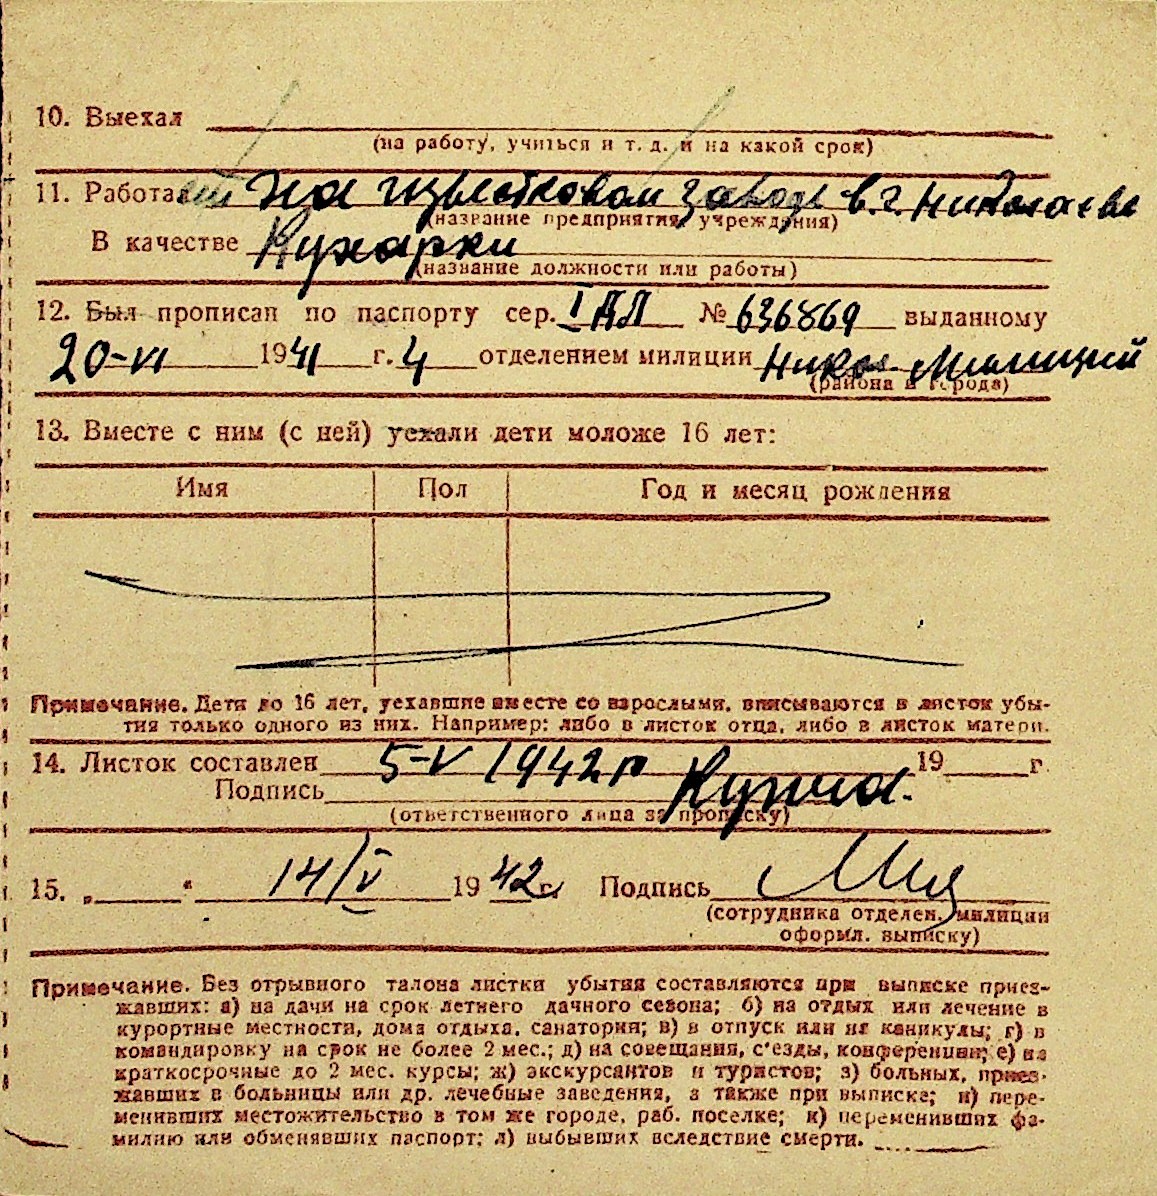 10. Выехал
(на работу, учиться и т. д. и на какой срок)
11. Работает на известковом заводе в г. Николаеве
(название предприятия, учреждения)
В качестве Кухарки
(название должности или работы)
12. Был прописан по паспорту сер. I АЛ № 636869 выданному
20-VI 1941 г. 4 отделением милиции Никол. Милицией
(района и города)
13. Вместе с ним (с ней) уехали дети моложе 16 лет:
Имя Пол Год и месяц рождения
Примечание. Дети до 16 лет, уехавшие вместе со взрослыми, вписываются в листок убы-
тия только одного из них. Например: либо в листок отца, либо в листок матери.
14. Листок составлен 5-V 1942 г 19 г.
Подпись
(ответственного лица за прописку)
15. „ “ 14/V 1942 г. Подпись
(сотрудника отделен. милиции
оформл. выписку)
Примечание. Без отрывного талона листки убытия составляются при выписке приез-
жавших: а) на дачи на срок летнего дачного сезона; б) на отдых или лечение в
курортные местности, дома отдыха, санатории; в) в отпуск или на каникулы; г) в
командировку на срок не более 2 мес.; д) на совещания, с'езды, конференции; е) на
краткосрочные до 2 мес. курсы; ж) экскурсантов и туристов; з) больных, приез-
жавших в больницы или др. лечебные заведения, а также при выписке; и) пере-
менивших местожительство в том же городе, раб. поселке; к) переменивших фа-
милию или обменявших паспорт; л) выбывших вследствие смерти.